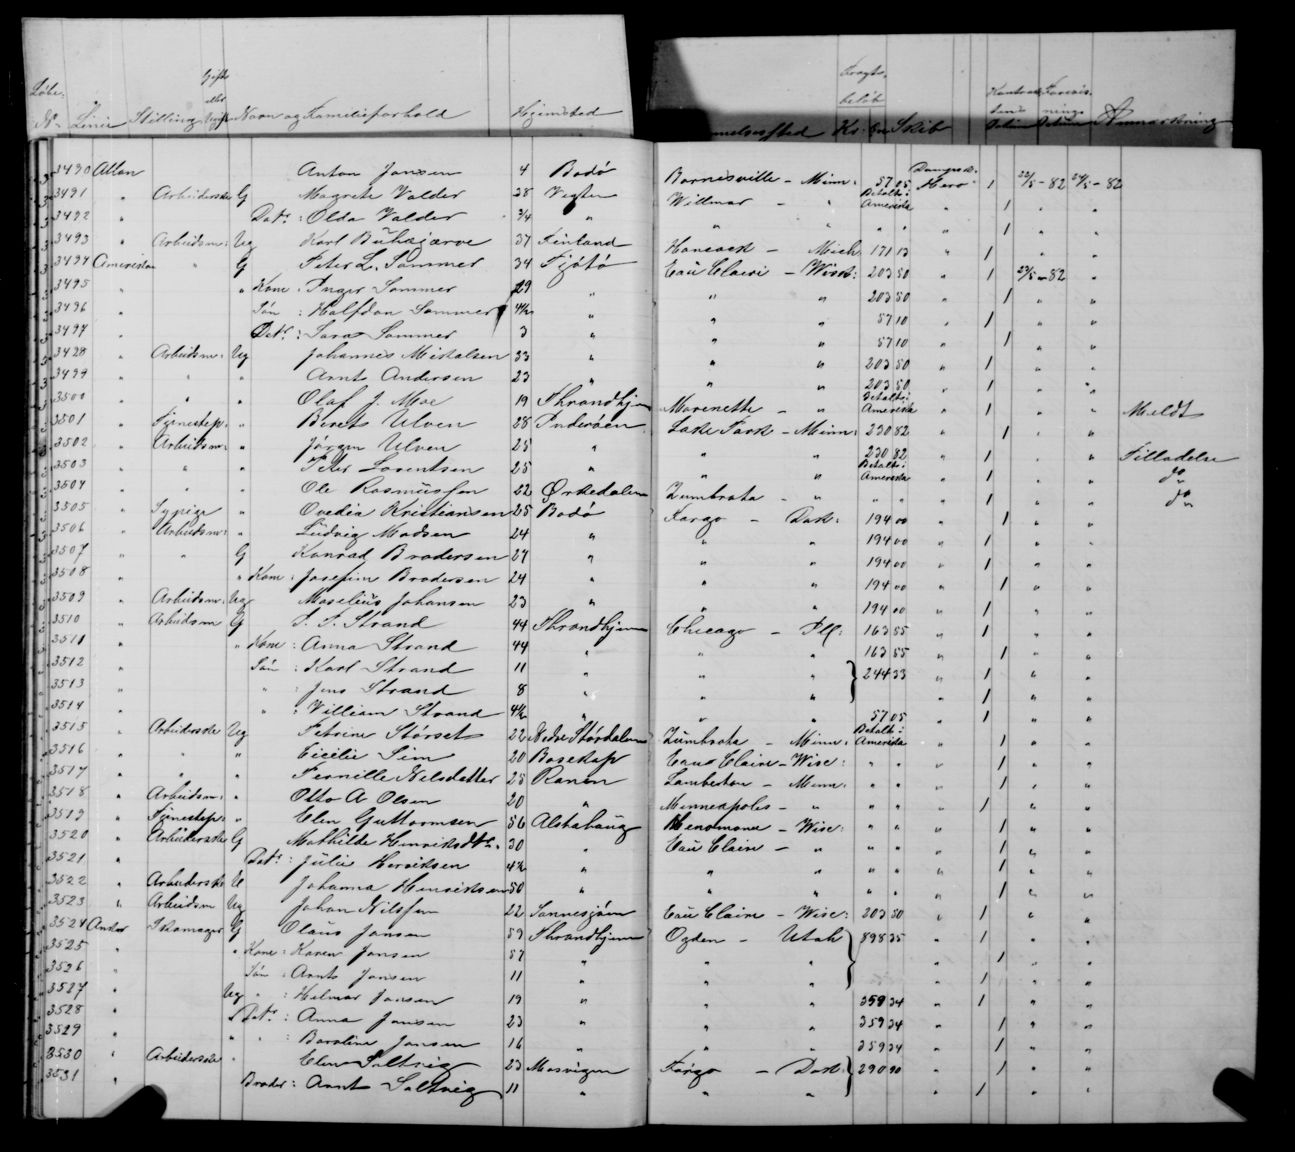 Løbe- No. Linie Stilling Gift eller Ugift Navn og Familieforhold Hjemsted Fragtbeløb Kr. Øre Skib Anmærkning
3490 Allan Anton Jansen 4 Bodø Barnesville - Minn: 57 05 Dampsk. Hero 1 - 82 - 82
3491 " Arbeiderske G Magrete Valder 28 Vegten Willmar - " Betalt i Amerika " 1 " "
3492 " Dat. : Olda Valder 3/4 " " " " " " 1 " "
3493 " Arbeidsm: Ug Karl 37 Finland Hancock - Mich: 171 13 " 1 " "
3494 American " G Peter L. Sommer 34 Tjøtø Eau Claire - Wisc: 203 50 " 1 - 82 "
3495 " " Kone : Inger Sommer 29 " " " 203 50 " 1 " "
3496 " Søn : Halfdan Sommer " " " 57 10 " 1 " "
3497 " Dat. : Sara Sommer 3 " " " 57 10 " 1 " "
3428 " Arbeidsm: Ug Johannes Mikalsen 33 " " " 203 50 " 1 " "
3499 " " " Arnt Andersen 23 " " " 203 50 " 1 " "
3500 " " " Olaf J. Moe 19 Throndhjem Marenette - " Betalt i Amerika " 1 " " Meldt
3501 " Tjenestep. " Beret Ulven 28 Inderøen Lake Park - Minn: 230 82 " 1 " "
3502 " Arbeidsm: " Jørgen Ulven 25 " " " 230 82 " 1 " " Tilladelse
3503 " " " Peter Lorentsen 25 " " " Betalt i Amerika " 1 " " do
3504 " " " Ole Rasmussen 22 Ørkedalen Zumbrota - " " " " 1 " " do
3505 " Sypige " Ovedia Kristiansen 25 Bodø Fargo - Dak: 194 00 " 1 " "
3506 " Arbeidsm: " Ludvig Madsen 24 " " " 194 00 " 1 " "
3507 " " G Konrad Brodersen 27 " " " 194 00 " 1 " "
3508 " " Kone : Josefine Brodersen 24 " " " 194 00 " 1 " "
3509 " Arbeidsm: Ug Maselius Johansen 23 " " " 194 00 " 1 " "
3510 " Arbeidsm G Strand 44 Throndhjem Chicago - Ill: 163 55 " 1 " "
3511 " " Kone : Anna Strand 44 " " " 163 55 " 1 " "
3512 " Søn : Karl Strand 11 " " " 244 33 " 1 " "
3513 " " : Jens Strand 8 " " " " 1 " "
3514 " " : William Strand 4½ " " " 57 05 " 1 " "
3515 " Arbeiderske Ug Petrine Størset 22 Nedre Størdalen Zumbrota - Minn: Betalt i Amerika " 1 " "
3516 " " " Cicilie Sim 20 Bosekop Eau Claire - Wisc: " " " 1 " "
3517 " " " Pernille Nilsdatter 25 Ranen Lamberton - Minn: " " " 1 " "
3518 " Arbeidsm: " Otto A Olsen 20 " Minneapolis - " " " " 1 " "
3519 " Tjenestep. " Elen Guttormsen 56 Alstahaug Menomone - Wisc: " " " 1 " "
3520 " Arbeiderske G Mathilde Henriksdt. 30 " Eau Claire - " " " " 1 " "
3521 " Dat. : Julie Henriksen 4½ " " " " " " 1 " "
3522 " Arbeiderske E Johanna Henriksen 50 " " " " " " 1 " "
3523 " Arbeidsm Ug Johan Nilssen 22 Sannesjøen Eau Claire - Wisc: 203 50 " 1 " "
3524 Anchor Skomager G Olaus Jansen 59 Throndhjem Ogden - Utah 898 35 " 1 " "
3525 " " Kone : Karen Jansen 57 " " " " 1 " "
3526 " Søn : Arnt Jansen 11 " " " " 1 " "
3527 " Ug " : Helmar Jansen 19 " " " 359 34 " 1 " "
3528 " " Dat. : Anna Jansen 23 " " " 359 34 " 1 " "
3529 " " " : Baroline Jansen 16 " " " 359 34 " 1 " "
3530 " Arbeiderske " Elen Saltvig 23 Mosvigen Fargo - Dak: 290 90 " 1 " "
3531 " Broder : Arnt Saltvig 11 " " " " 1 " "